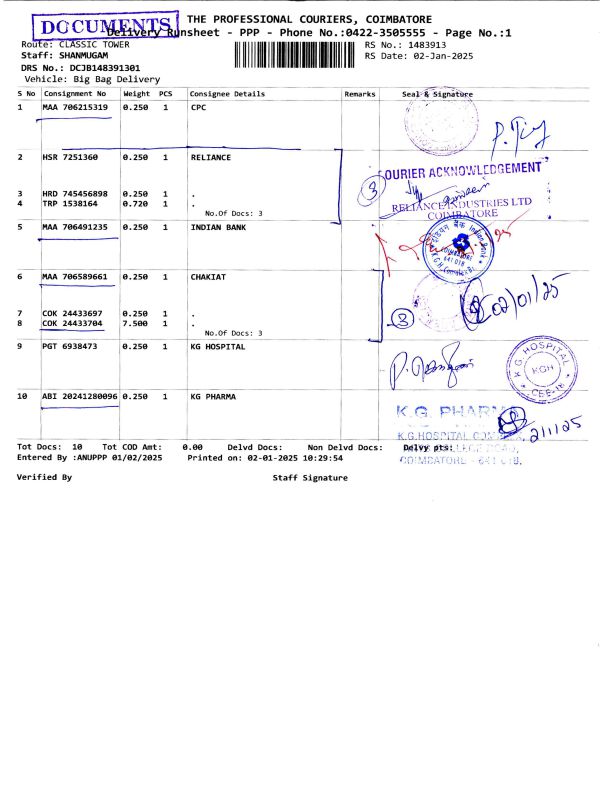 DOCUMENTS
THE PROFESSIONAL COURIERS, COIMBATORE
Delivery Runsheet - PPP - Phone No.:0422-3505555 - Page No.:1
Route: CLASSIC TOWER
RS No.: 1483913
Staff: SHANMUGAM
RS Date: 02-Jan-2025
DRS No.: DCJB148391301
Vehicle: Big Bag Delivery
S No Consignment No Weight PCS Consignee Details Remarks Seal & Signature
1 MAA 706215319 0.250 1 CPC
2 HSR 7251360 0.250 1 RELIANCE
COURIER ACKNOWLEDGEMENT
3
3 HRD 745456898 0.250 1 .
4 TRP 1538164 0.720 1 .
RELIANCE INDUSTRIES LTD
No.Of Docs: 3
COIMBATORE
5 MAA 706491235 0.250 1 INDIAN BANK
Indian Bank
COIMBATORE
641 018
6 MAA 706589661 0.250 1 CHAKIAT
02/01/25
7 COK 24433697 0.250 1 .
8 COK 24433704 7.500 1 .
3
No.Of Docs: 3
9 PGT 6938473 0.250 1 KG HOSPITAL
K.G. HOSPITAL
KGH
CBE-18
10 ABI 20241280096 0.250 1 KG PHARMA
K.G. PHARMA
2/1/25
K.G.HOSPITAL
Tot Docs: 10 Tot COD Amt: 0.00 Delvd Docs: Non Delvd Docs: Delvy pts:
COIMBATORE - 641 018.
Entered By :ANUPPP 01/02/2025 Printed on: 02-01-2025 10:29:54
Verified By Staff Signature